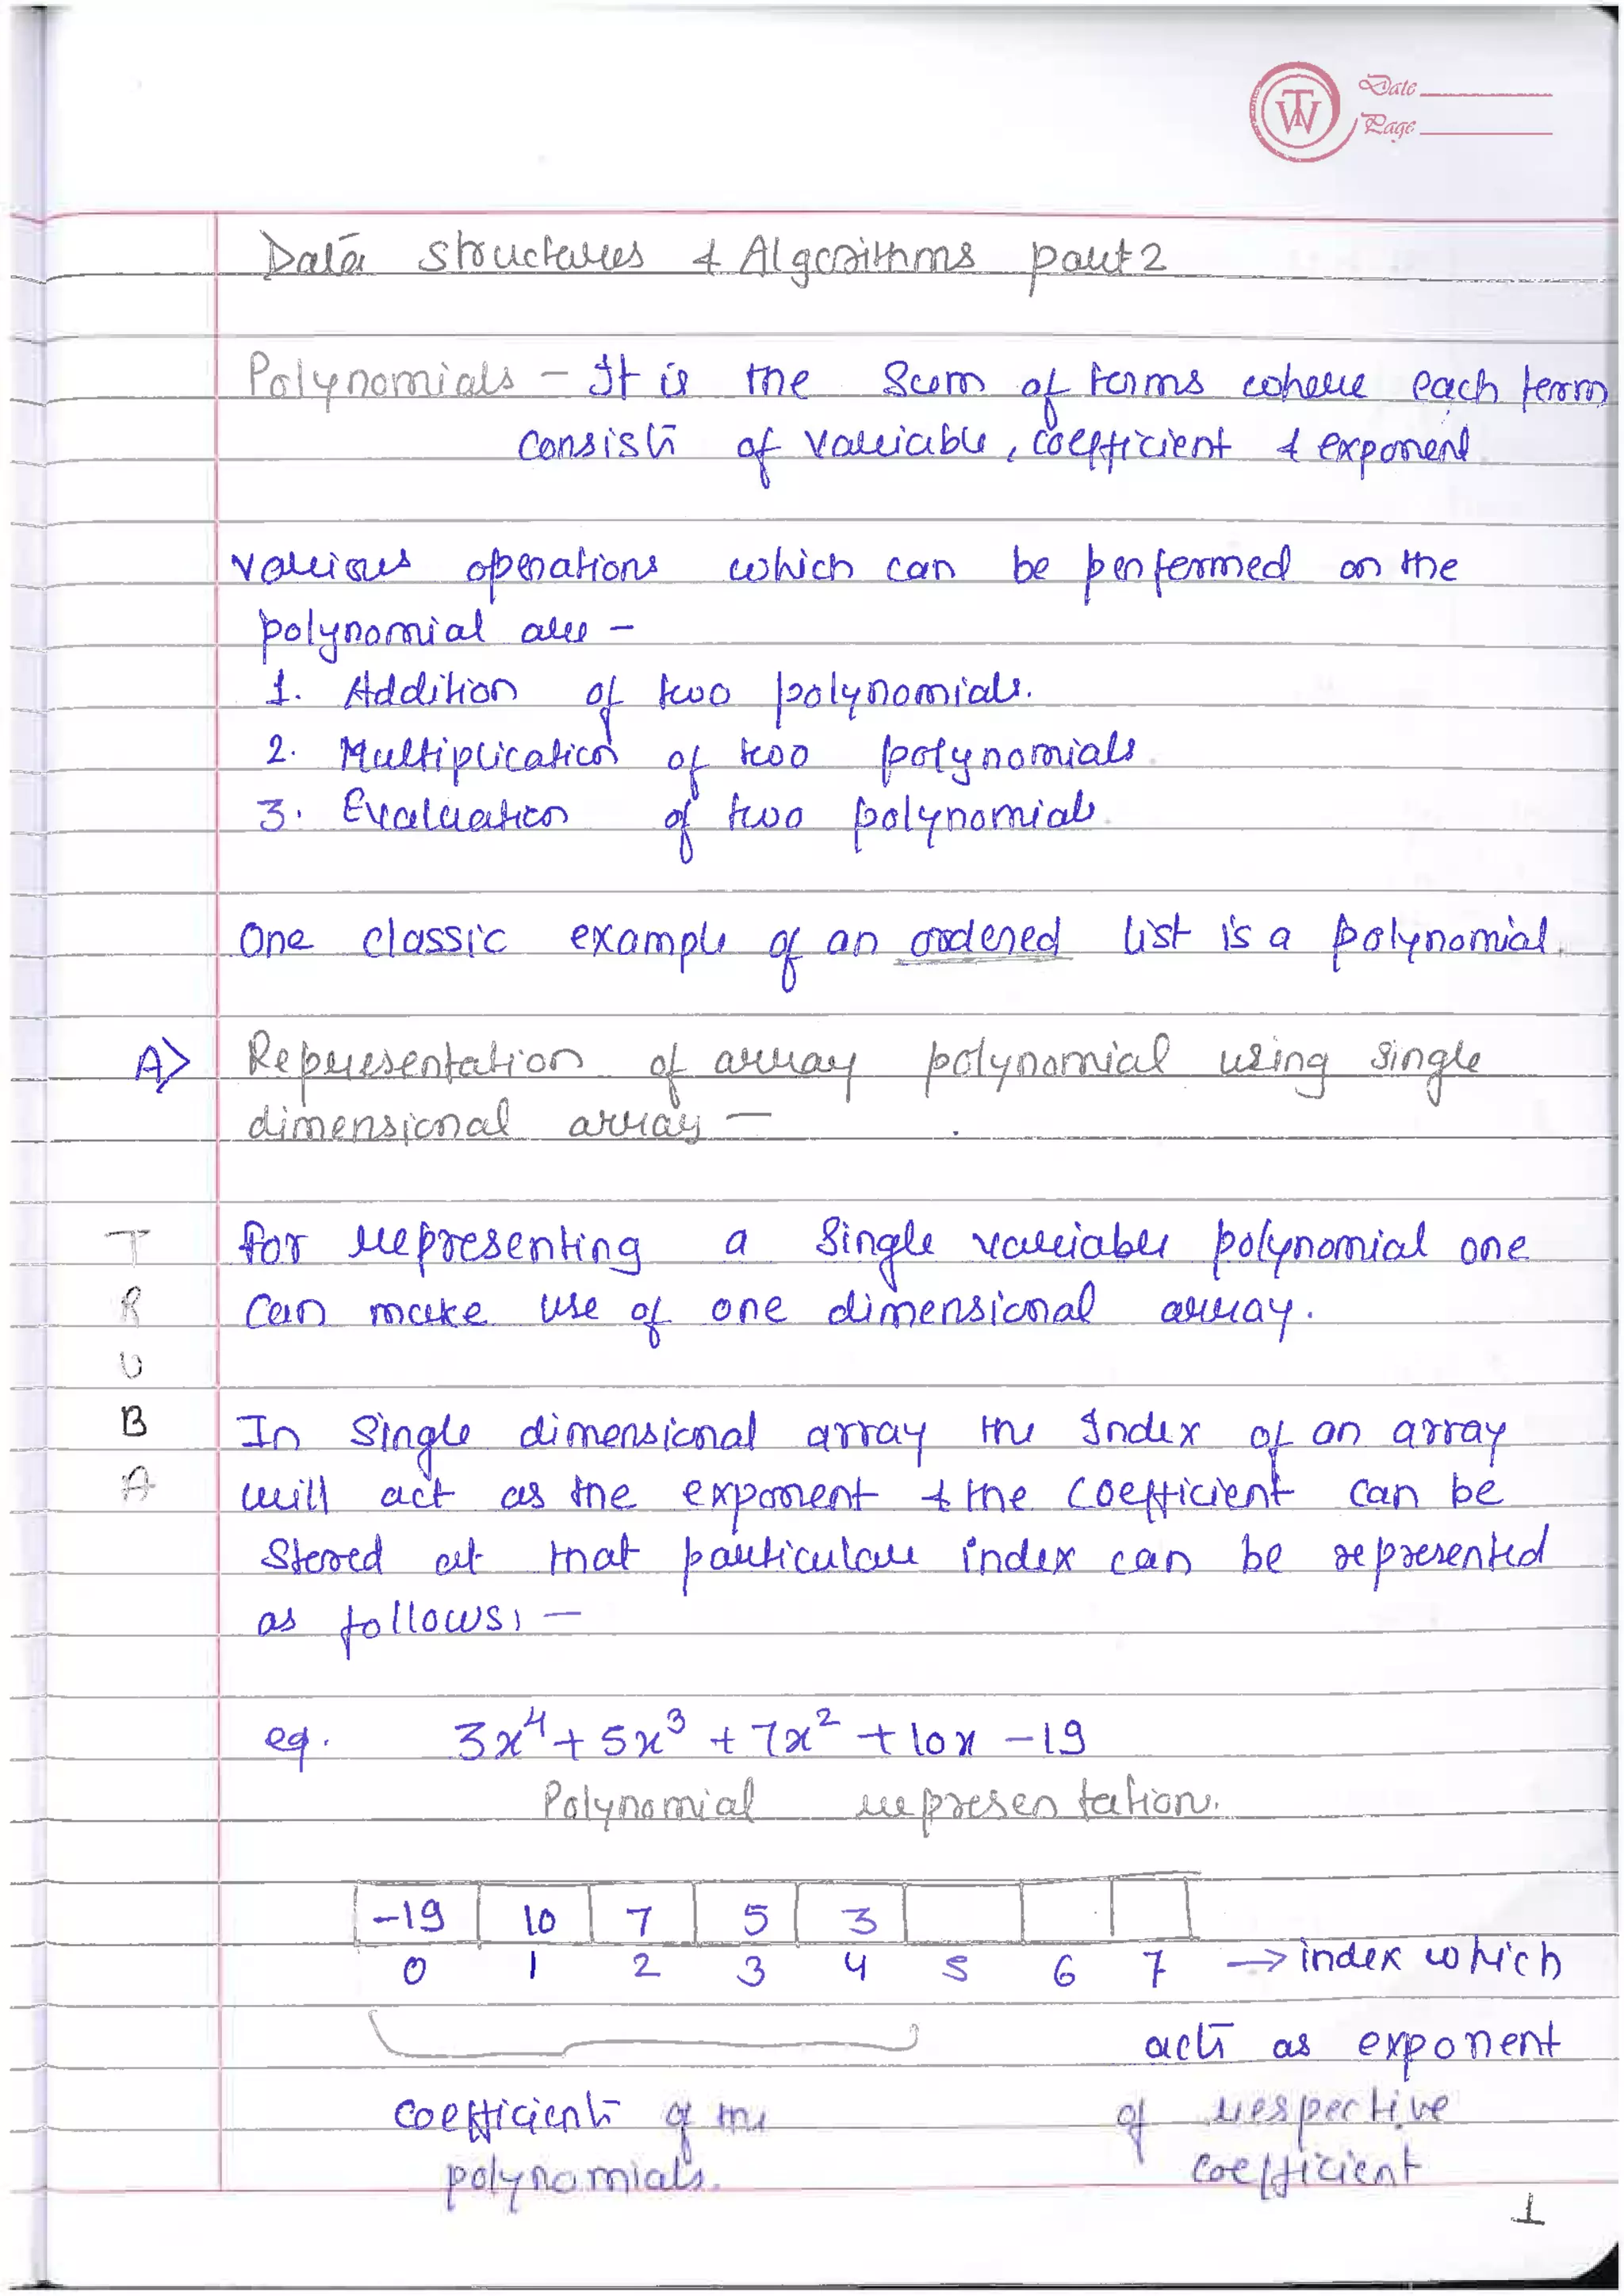 Date
Page
Data structures & Algorithms part 2
Polynomials - It is the sum of terms where each term
consists of variable, coefficient & exponent
various operations which can be performed on the
polynomial are -
1. Addition of two polynomials.
2. Multiplication of two polynomials
3. Evaluation of two polynomials
One classic example of an ordered list is a polynomial.
A> Representation of array polynomial using single
dimensional array -
for representing a single variable polynomial one
can make use of one dimensional array.
T
R
U
B
A
In single dimensional array the Index of an array
will act as the exponent & the coefficient can be
stored at that particular index can be represented
as follows: -
eg. 3x⁴ + 5x³ + 7x² + 10x - 19
Polynomial representation.
-19 10 7 5 3
0 1 2 3 4 5 6 7 → index which
acts as exponent
coefficients of the of respective
polynomials. coefficient
1